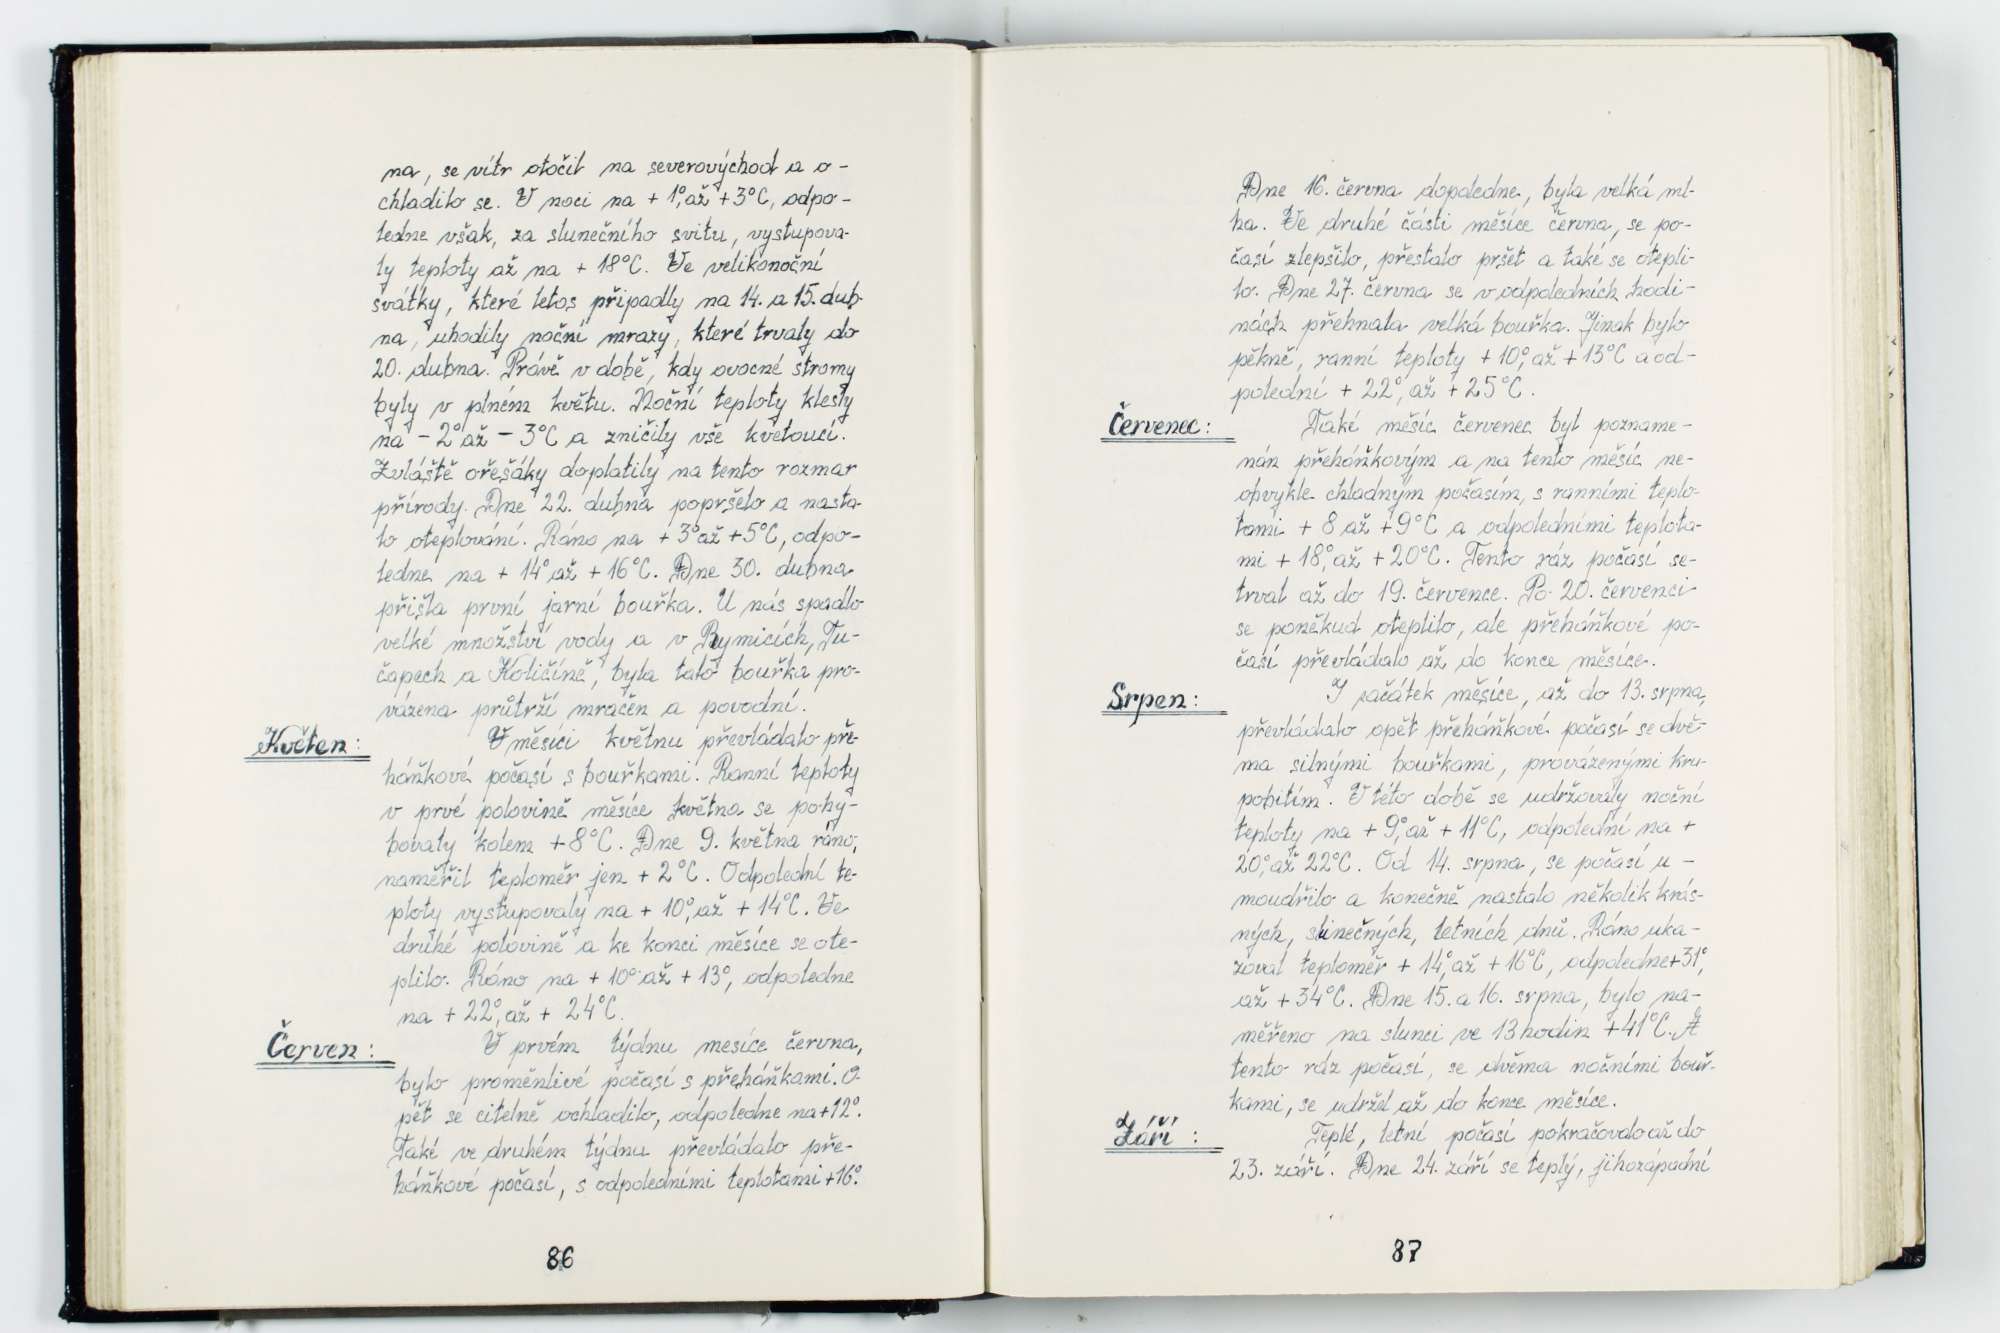 na, se vítr otočil na severovýchod a o-
chladilo se. V noci na + 1°, až + 3°C, odpo-
ledne však, za slunečního svitu, vystupova-
ly teploty až na + 18°C. Ve velikonoční
svátky, které letos připadly na 14. a 15. dub-
na, uhodily noční mrazy, které trvaly do
20. dubna. Právě v době, kdy ovocné stromy
byly v plném květu. Noční teploty klesly
na - 2° až - 3°C a zničily vše kvetoucí.
Zvláště ořešáky doplatily na tento rozmar
přírody. Dne 22. dubna popršelo a nasta-
lo oteplování. Ráno na + 3° až +5°C, odpo-
ledne na + 14° až + 16°C. Dne 30. dubna
přišla první jarní bouřka. U nás spadlo
velké množství vody a v Rymicích, Tu-
čapech a Količíně, byla tato bouřka pro-
vázena průtrží mračen a povodní.
Květen:
V měsíci květnu převládalo pře-
háňkové počasí s bouřkami. Ranní teploty
v prvé polovině měsíce května se pohy-
bovaly kolem +8°C. Dne 9. května ráno,
naměřil teploměr jen + 2°C. Odpolední te-
ploty vystupovaly na + 10°, až + 14°C. Ve
druhé polovině a ke konci měsíce se ote-
plilo. Ráno na + 10° až + 13°, odpoledne
na + 22°, až + 24°C.
Červen:
V prvém týdnu mesíce června,
bylo proměnlivé počasí s přeháňkami. O-
pět se citelně ochladilo, odpoledne na +12°.
Také ve druhém týdnu převládalo pře-
háňkové počasí, s odpoledními teplotami +16°.
86
Dne 16. června dopoledne, byla velká ml-
ha. Ve druhé části měsíce června, se po-
časí zlepšilo, přestalo pršet a také se otepli-
lo. Dne 27. června se v odpoledních hodi-
nách přehnala velká bouřka. Jinak bylo
pěkně, ranní teploty + 10°, až + 13°C a od-
polední + 22°, až + 25°C.
Červenec:
Také měsíc červenec byl pozname-
nán přeháňkovým a na tento měsíc ne-
obvykle chladným počasím, s ranními teplo-
tami + 8 až + 9°C a odpoledními teplota-
mi + 18°, až + 20°C. Tento ráz počasí se-
trval až do 19. července. Po 20. červenci
se poněkud oteplilo, ale přeháňkové po-
časí převládalo až do konce měsíce.
Srpen:
I začátek měsíce, až do 13. srpna,
převládalo opět přeháňkové počasí se dvě-
ma silnými bouřkami, provázenými kru-
pobitím. V této době se udržovaly noční
teploty na + 9°, až + 11°C, odpolední na +
20°, až 22°C. Od 14. srpna, se počasí u-
moudřilo a konečně nastalo několik krás-
ných, slunečných, letních dnů. Ráno uka-
zoval teploměr + 14°, až + 16°C, odpoledne +31°,
až + 34°C. Dne 15. a 16. srpna, bylo na-
měřeno na slunci ve 13 hodin +41°C. A
tento ráz počasí, se dvěma nočními bouř-
kami, se udržel až do konce měsíce.
Září:
Teplé, letní počasí pokračovalo až do
23. září. Dne 24. září se teplý, jihozápadní
87